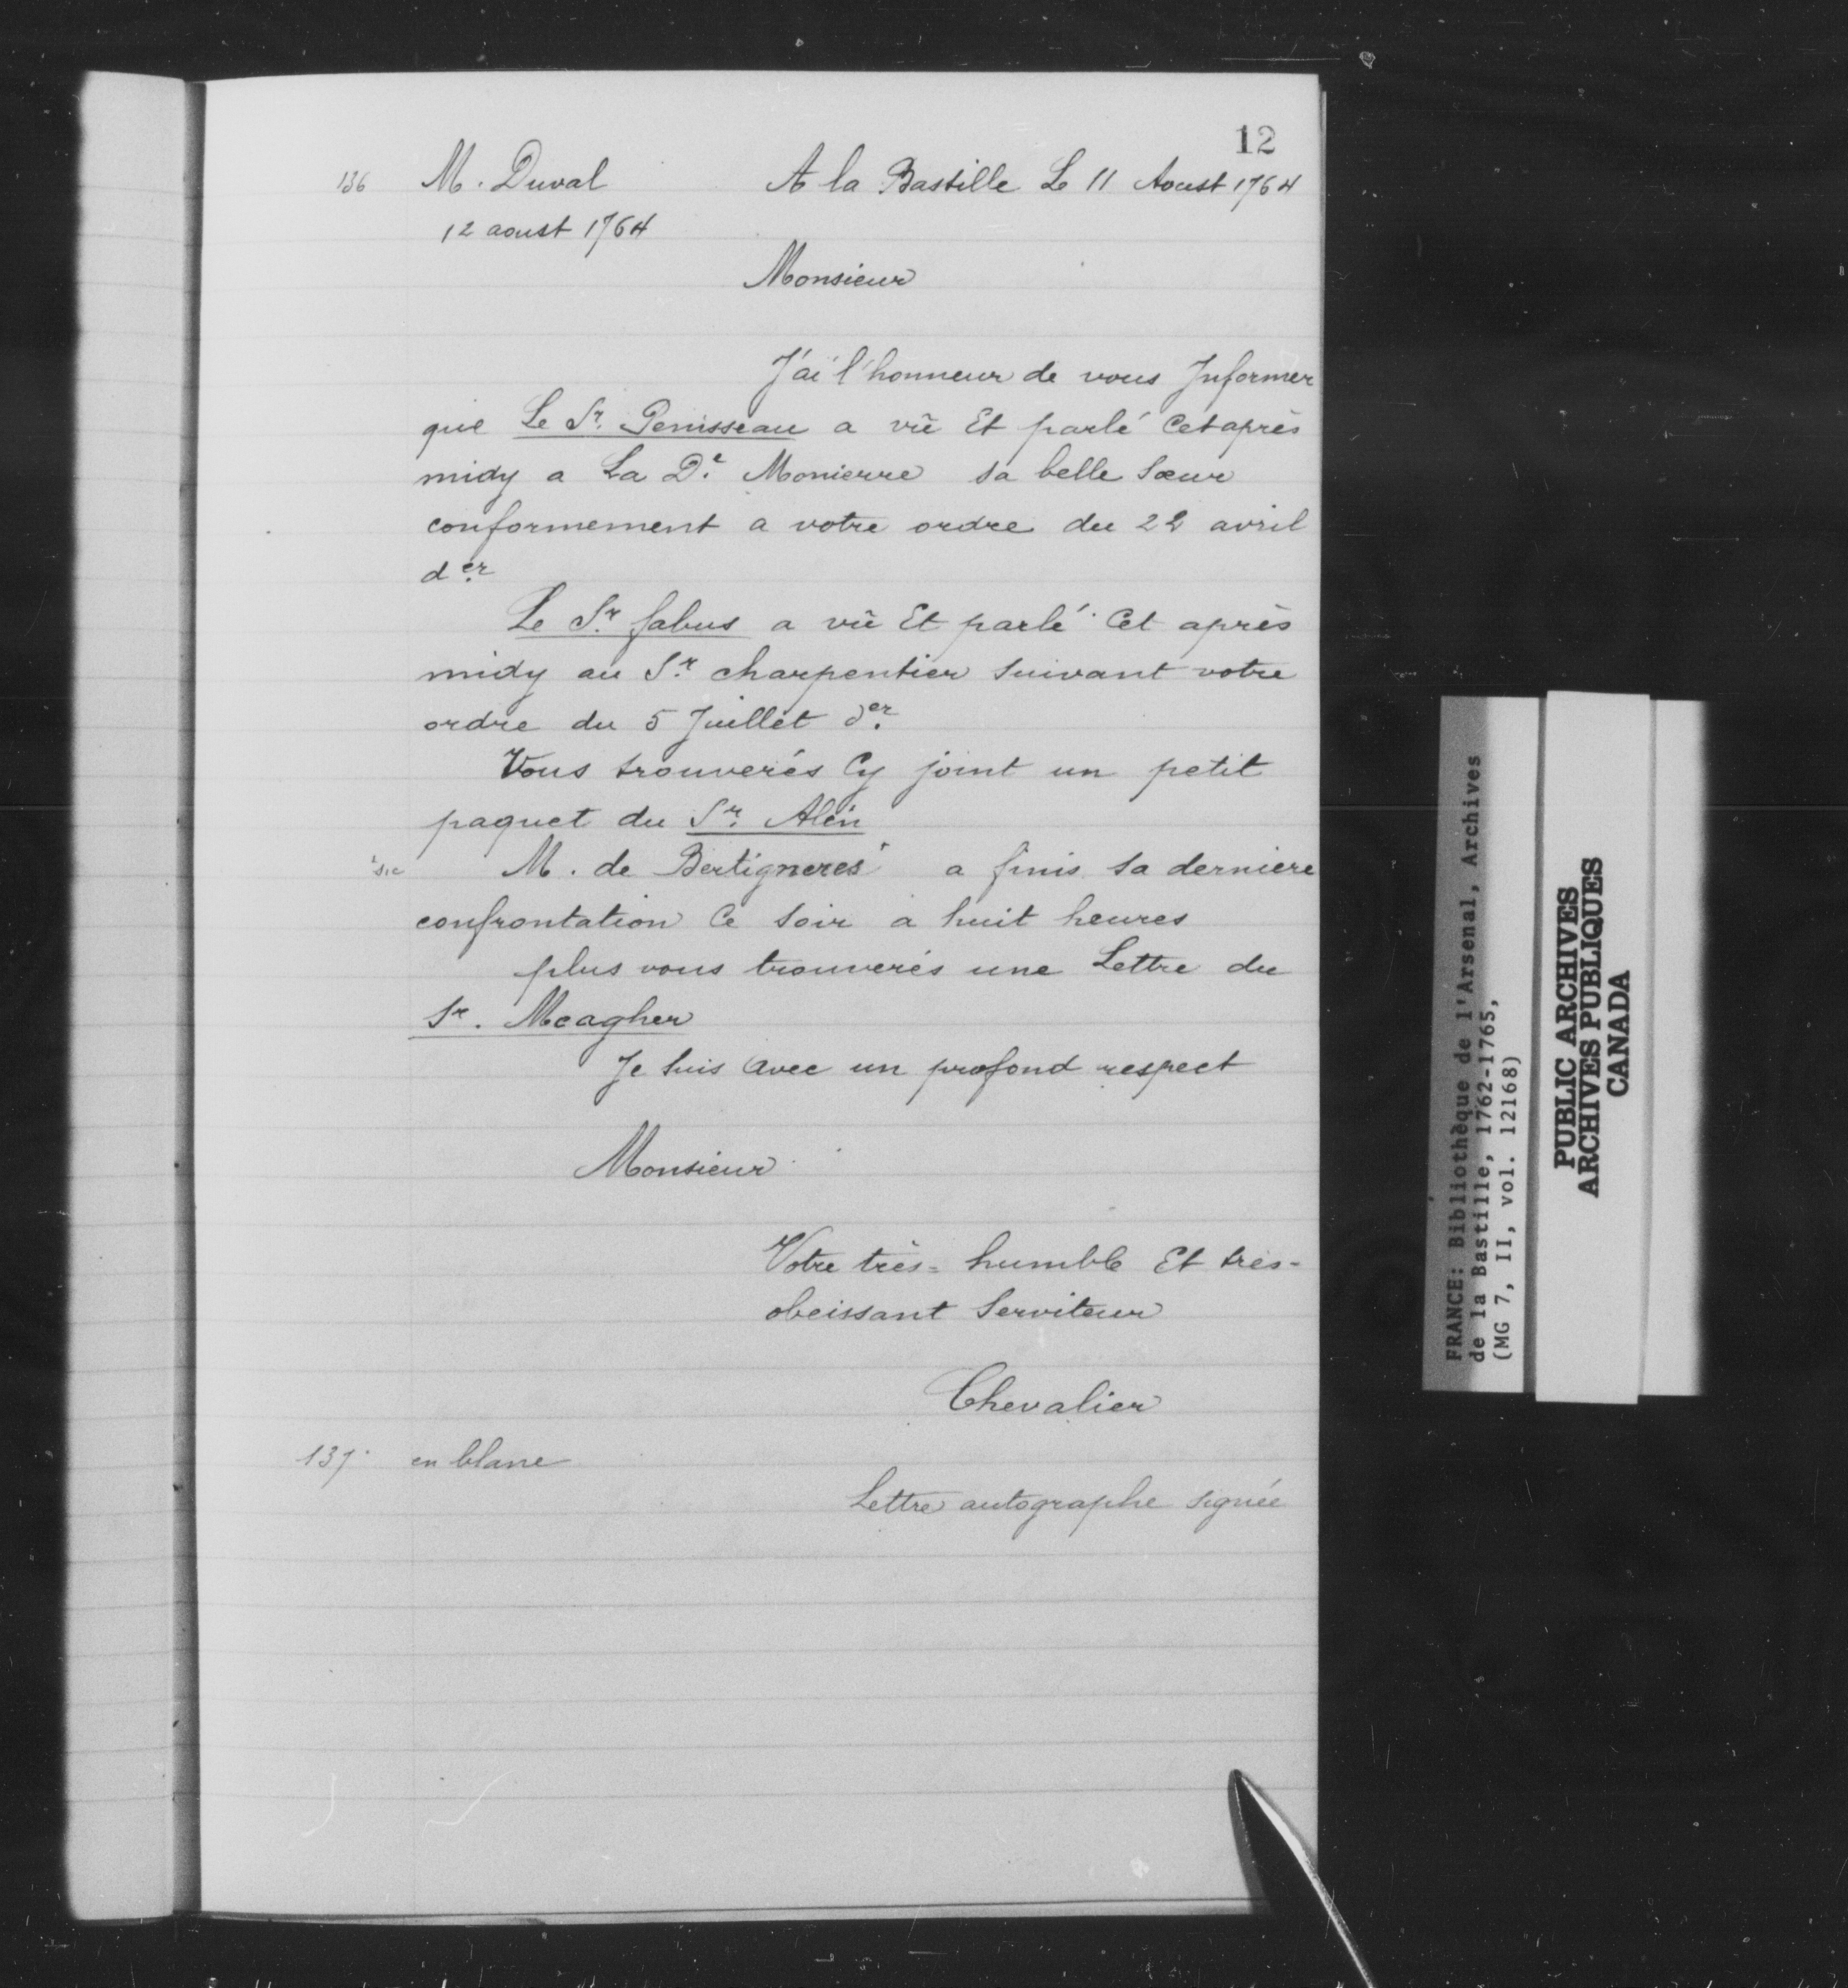 12
136 M. Duval A la Bastille Le 11 Aoust 1764
12 aoust 1764
Monsieur
J'ai l'honneur de vous Informer
que Le Sr. Penisseau a vû Et parlé Cet après
midy a La De. Monierre sa belle Sœur
conformement a votre ordre du 22 avril
der.
Le Sr. fabus a vû Et parlé Cet après
midy au Sr. charpentier suivant votre
ordre du 5 Juillet der.
Vous trouverés Cy joint un petit
paquet du Sr. Alen
sic M. de Bertigneres a finis sa derniere
confrontation Ce soir a huit heures
plus vous trouverés une Lettre du
Sr. Meagher
Je suis avec un profond respect
Monsieur
Votre très-humble Et très-
obeissant Serviteur
Chevalier
137. en blanc
Lettre autographe signée
FRANCE: Bibliothèque de l'Arsenal, Archives
de la Bastille, 1762-1765,
(MG 7, II, vol. 12168)
PUBLIC ARCHIVES
ARCHIVES PUBLIQUES
CANADA